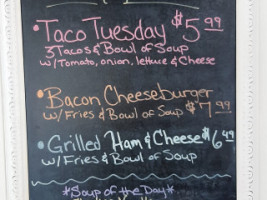 • Taco Tuesday $5.99
3 Tacos & Bowl of Soup
w/ Tomato, onion, lettuce & Cheese
• Bacon Cheeseburger
w/ Fries & Bowl of Soup $7.99
• Grilled Ham & Cheese $6.49
w/ Fries & Bowl of Soup
*Soup of the Day*